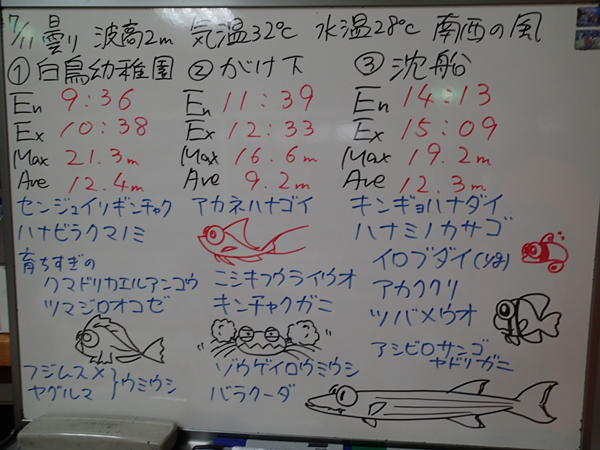 7/11 曇り 波高2m 気温32℃ 水温28℃ 南西の風
① 白鳥幼稚園
En 9:36
Ex 10:38
Max 21.3m
Ave 12.4m
センジュイソギンチャク
ハナビラクマノミ
育ちすぎの
クマドリカエルアンコウ
ツマジロオコゼ
フジムスメ
ヤグルマ } ウミウシ
② がけ下
En 11:39
Ex 12:33
Max 16.6m
Ave 9.2m
アカネハナゴイ
ニシキフウライウオ
キンチャクガニ
ゾウゲイロウミウシ
バラクーダ
③ 沈船
En 14:13
Ex 15:09
Max 19.2m
Ave 12.3m
キンギョハナダイ
ハナミノカサゴ
イロブダイ(yg)
アカククリ
ツバメウオ
アシビロサンゴ
ヤドリガニ